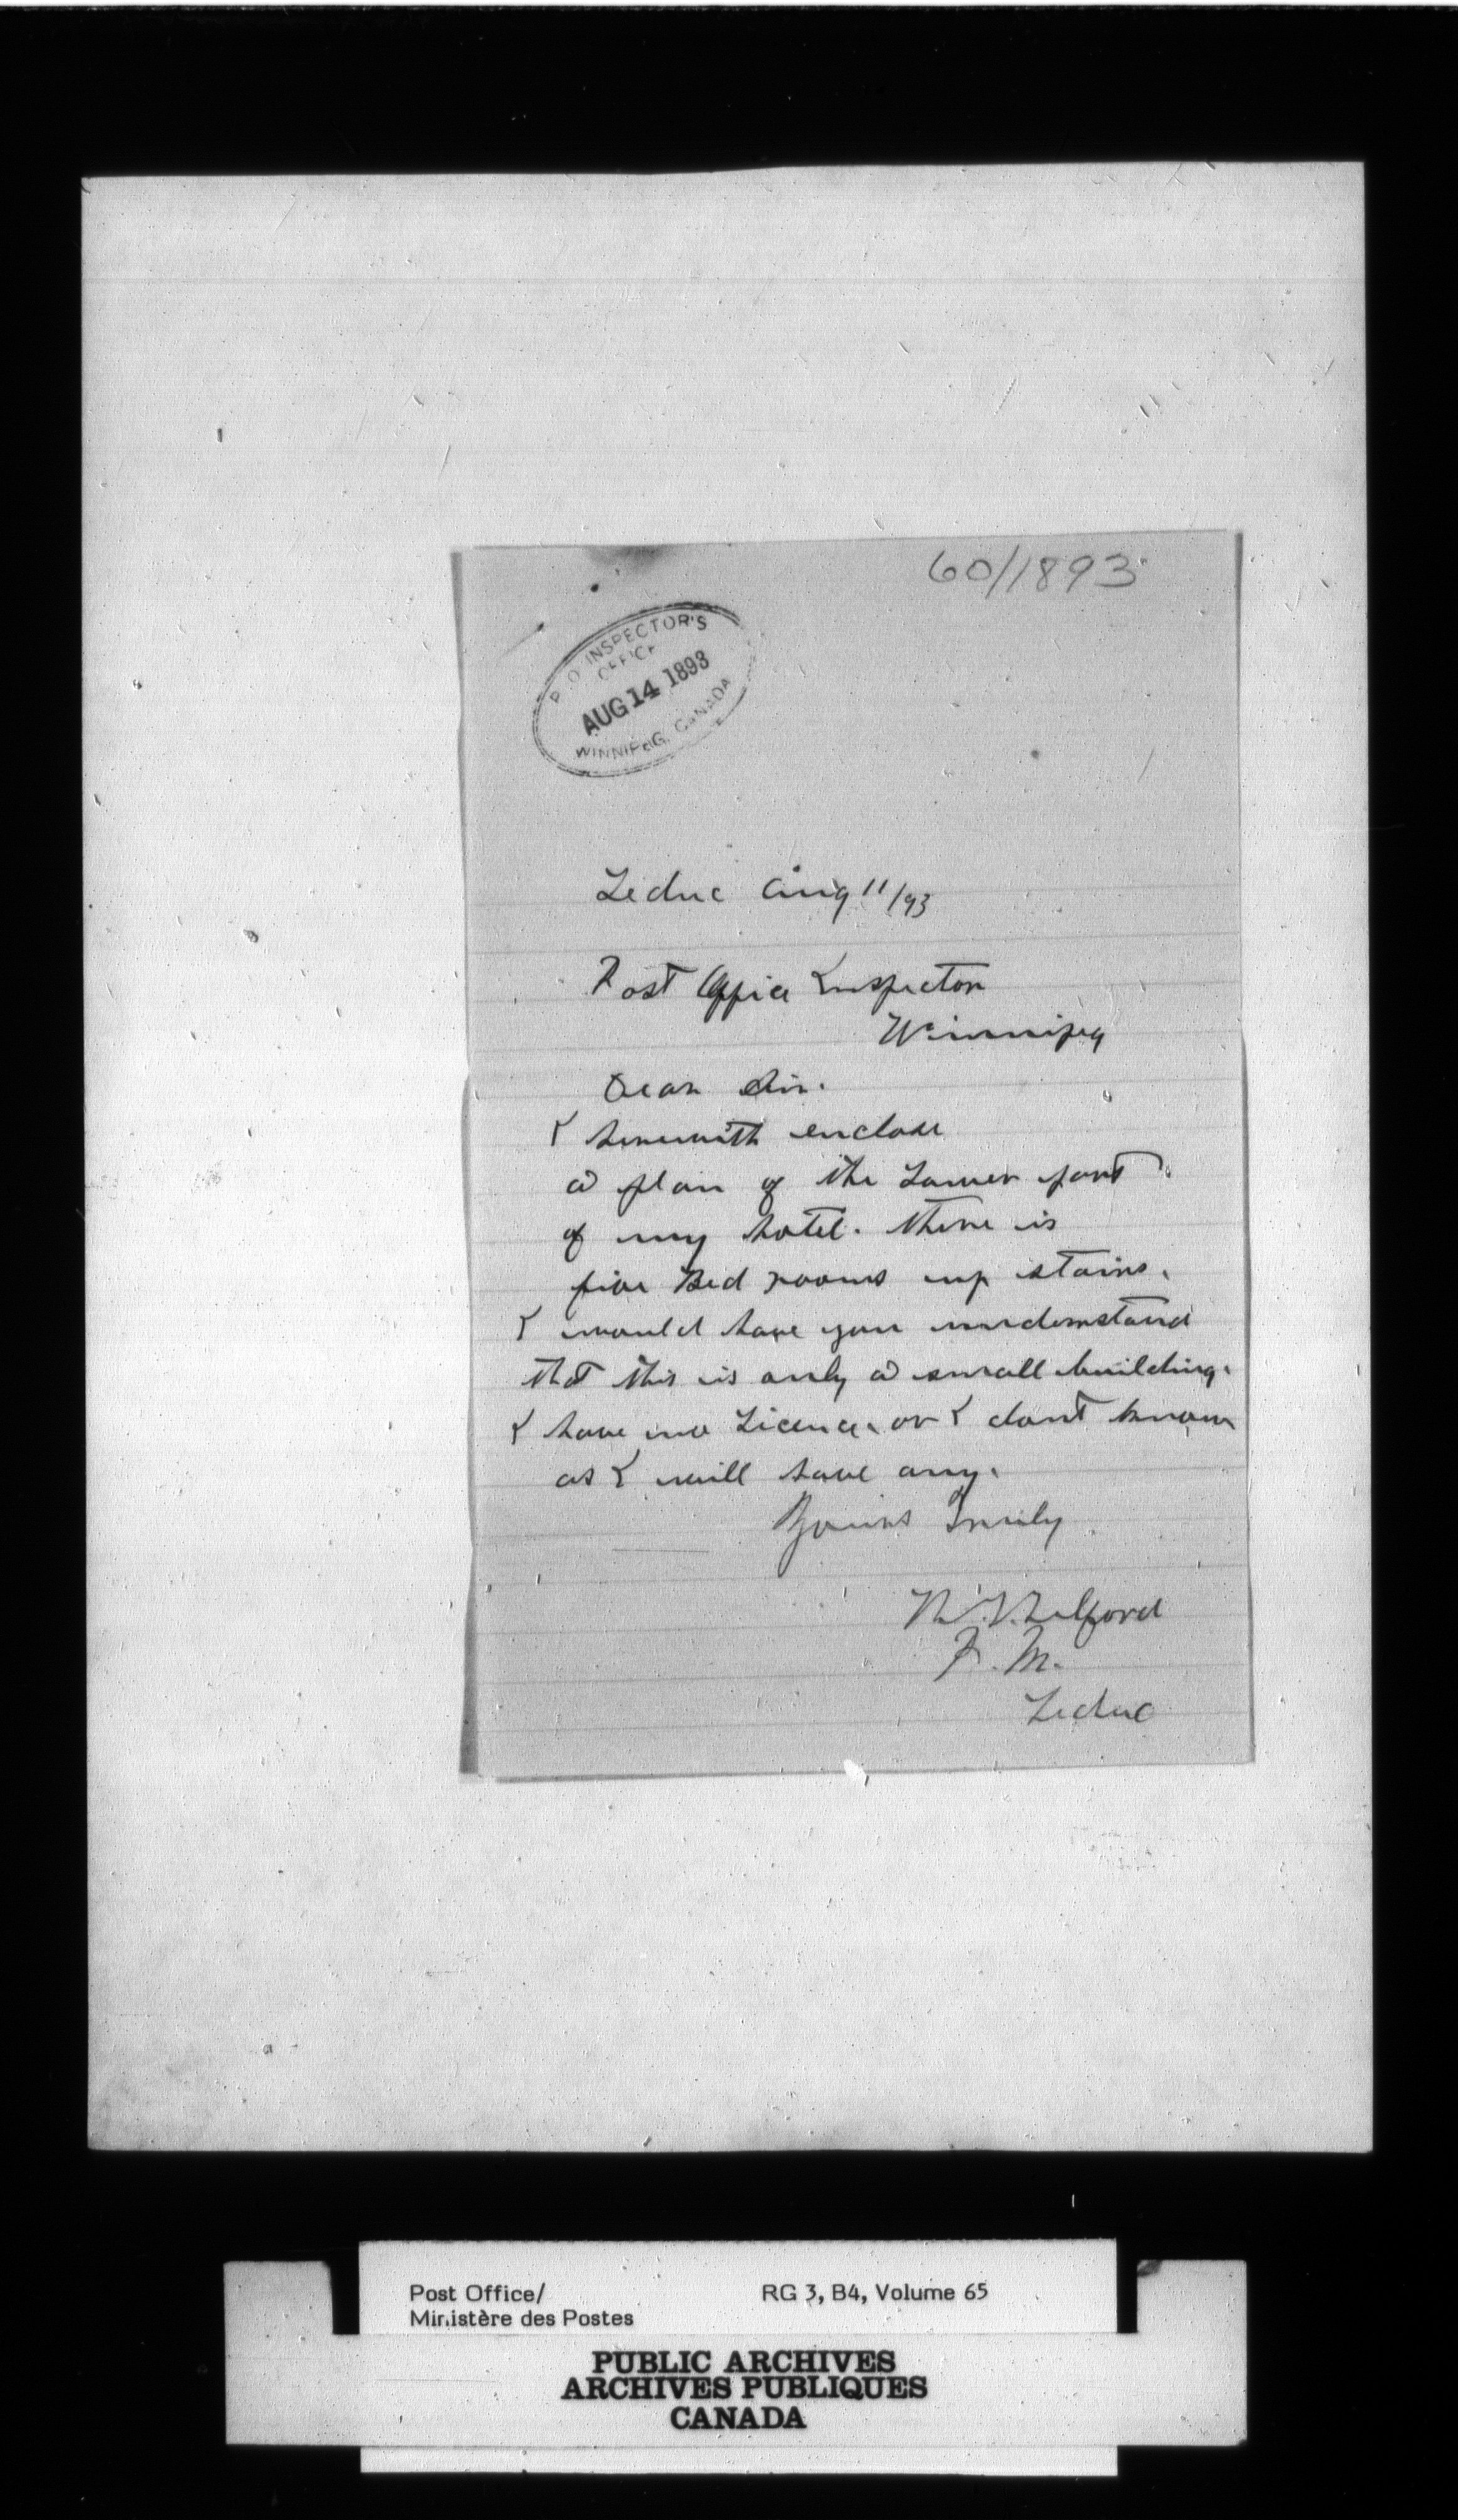 60/1893
P.O. INSPECTOR'S
OFFICE
AUG 14 1893
WINNIPEG, CANADA
Leduc Aug 11/93
Post Office Inspector
Winnipeg
Dear Sir.
I herewith enclose
a plan of the Lower part
of my hotel. there is
five Bed rooms up stairs.
I would have you understand
that this is only a small building.
I have no Licence. or I dont know
as I will have any.
Yours Truly
R. T. Telford
P. M.
Leduc
Post Office/
Ministère des Postes
RG 3, B4, Volume 65
PUBLIC ARCHIVES
ARCHIVES PUBLIQUES
CANADA